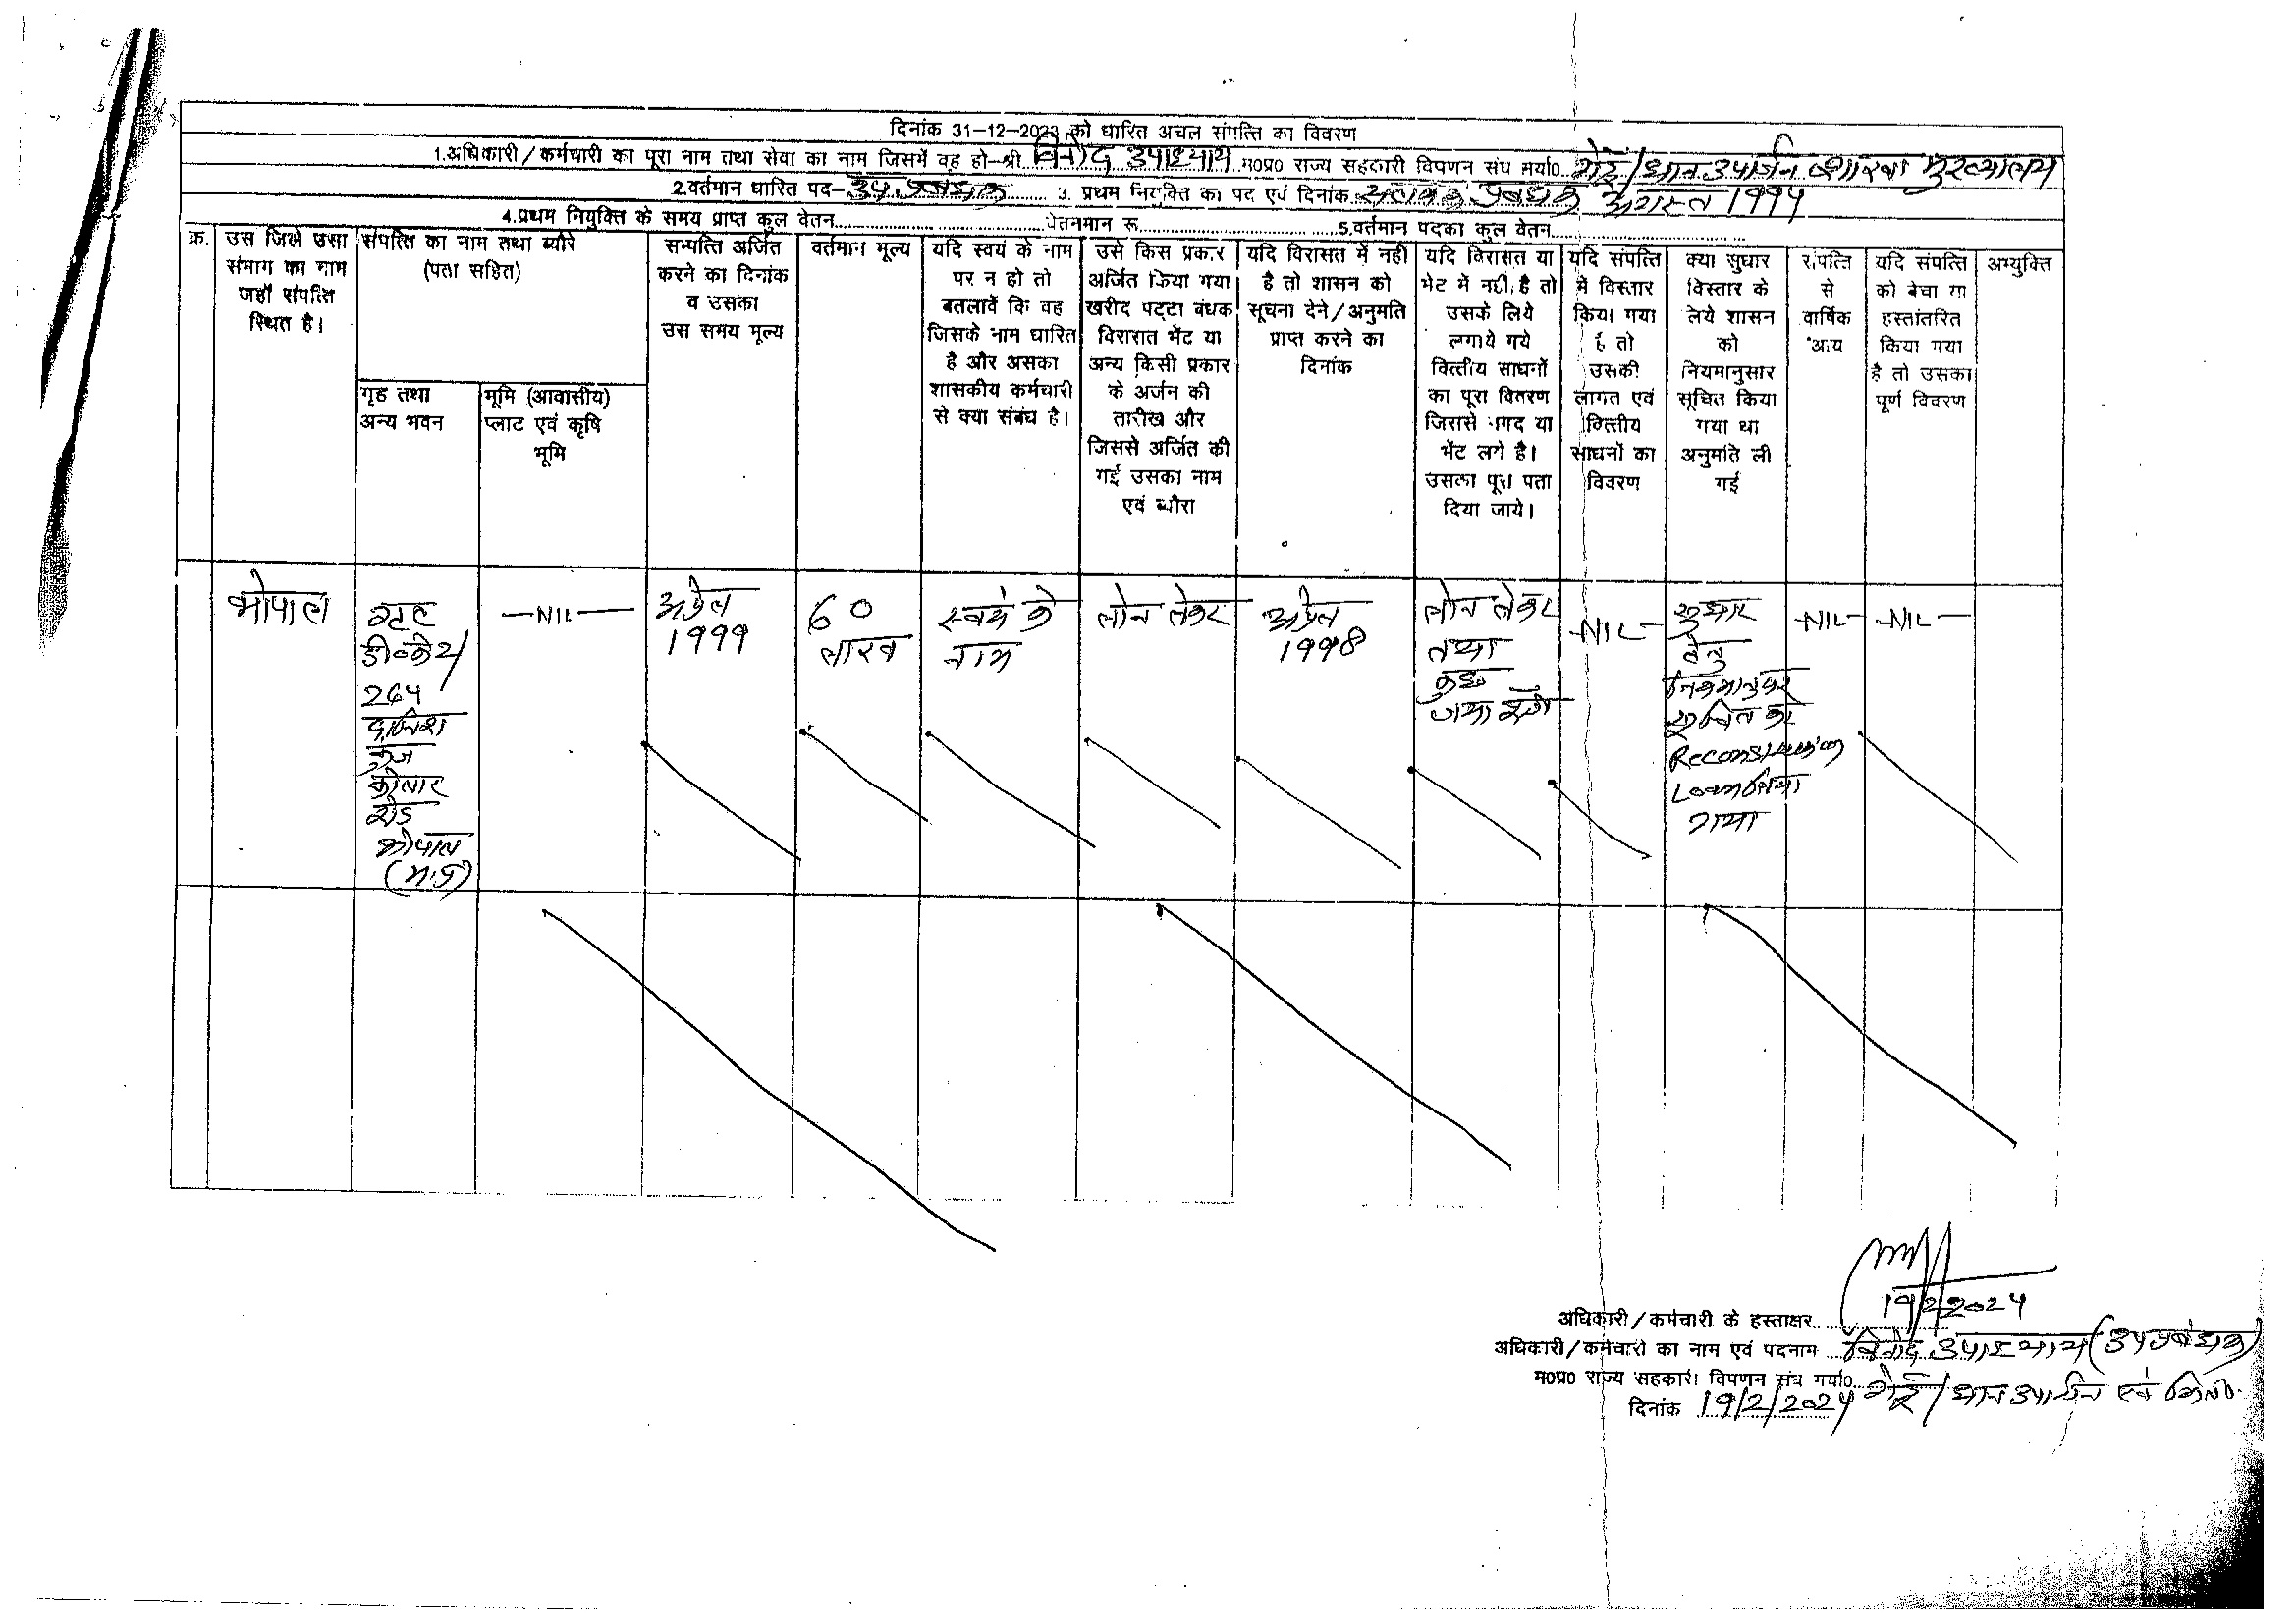 दिनांक 31-12-2023 को धारित अचल संपत्ति का विवरण
1.अधिकारी/कर्मचारी का पूरा नाम तथा सेवा का नाम जिसमें वह हो-श्री विनोद उपाध्याय म0प्र0 राज्य सहकारी विपणन संघ मर्या0 गेहूँ/धान उपार्जन शाखा मुख्यालय
2.वर्तमान धारित पद- उप प्रबंधक 3. प्रथम नियुक्ति का पद एवं दिनांक सहायक प्रबंधक अगस्त 1994
4.प्रथम नियुक्ति के समय प्राप्त कुल वेतन वेतनमान रू 5.वर्तमान पदका कुल वेतन
क्र.
उस जिले उसा
संभाग का नाम
जहाँ संपत्ति
स्थित है।
संपत्ति का नाम तथा ब्यौरे
(पता सहित)
गृह तथा
अन्य भवन
भूमि (आवासीय)
प्लाट एवं कृषि
भूमि
सम्पत्ति अर्जित
करने का दिनांक
व उसका
उस समय मूल्य
वर्तमान मूल्य
यदि स्वयं के नाम
पर न हो तो
बतलावें कि वह
जिसके नाम धारित
है और असका
शासकीय कर्मचारी
से क्या संबंध है।
उसे किस प्रकार
अर्जित किया गया
खरीद पट्टा बंधक
विरासत भेंट या
अन्य किसी प्रकार
के अर्जन की
तारीख और
जिससे अर्जित की
गई उसका नाम
एवं ब्यौरा
यदि विरासत में नही
है तो शासन को
सूचना देने/अनुमति
प्राप्त करने का
दिनांक
यदि विरासत या
भेट में नहीं है तो
उसके लिये
लगाये गये
वित्तीय साधनों
का पूरा विवरण
जिससे नगद या
भेंट लगे है।
उसका पूरा पता
दिया जाये।
यदि संपत्ति
में विस्तार
किया गया
है तो
उसकी
लागत एवं
वित्तीय
साधनों का
विवरण
क्या सुधार
विस्तार के
लिये शासन
को
नियमानुसार
सूचित किया
गया था
अनुमति ली
गई
संपत्ति
से
वार्षिक
आय
यदि संपत्ति
को बेचा या
हस्तांतरित
किया गया
है तो उसका
पूर्ण विवरण
अभ्युक्ति
भोपाल
गृह
डी०के२/
264
दानिश
कुंज
कोलार
रोड
भोपाल
(म.प्र)
-NIL-
अप्रैल
1999
60
लाख
स्वयं के
नाम
लोन लेकर
अप्रैल
1998
लोन लेकर
तथा
कुछ
जमा
-NIL-
सुधार
हेतु
नियमानुसार
सूचित कर
Reconstruction
Loan लिया
गया
-NIL-
-NIL-
19/2/2024
अधिकारी/कर्मचारी के हस्ताक्षर
अधिकारी/कर्मचारी का नाम एवं पदनाम विनोद उपाध्याय (उप प्रबंधक)
म0प्र0 राज्य सहकारी विपणन संघ मर्या0 गेहूँ/धान उपार्जन एवं
दिनांक 19/2/2024